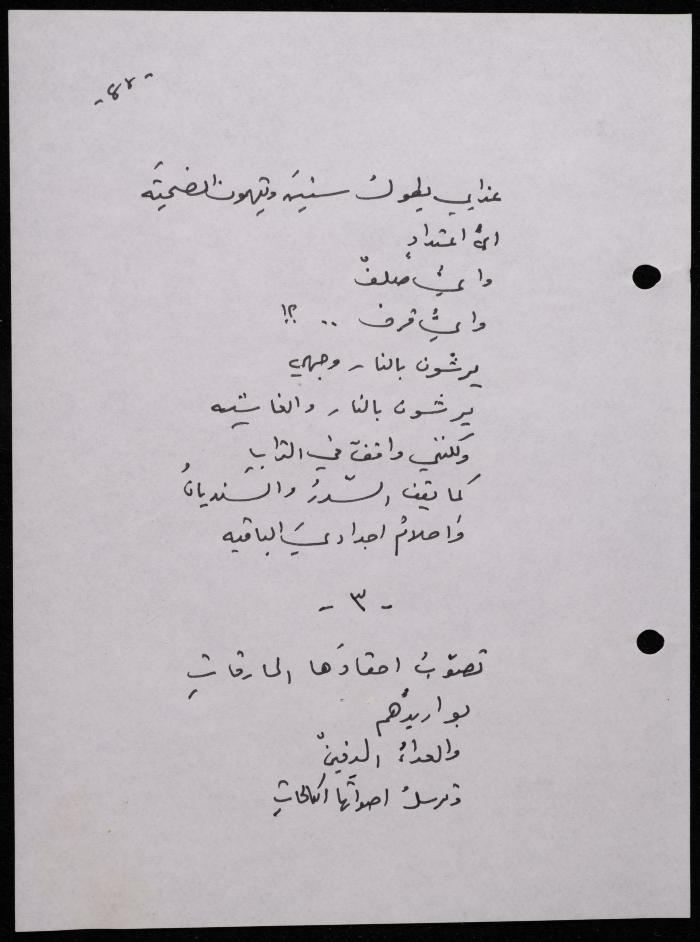 -٤٢-
عذابي يطول سنينَ وتهون الضحيَّه
ايُّ امتدادٍ
وايُّ صلفٌ
وايُّ قرف .. ؟!
يرشّون بالنار وجهي
يرشون بالنار والغاشيه
ولكنني واقفٌ في الترابِ
كما تقف السّدرُ والسنديانُ
وَاحلامُ اجداديَ الباقيه
- ٣ -
تصوّبُ احقادَها المارقاتِ
بواريدُهم
والعداءُ الدفينْ
وترسلُ اصواتَها الكالحاتِ